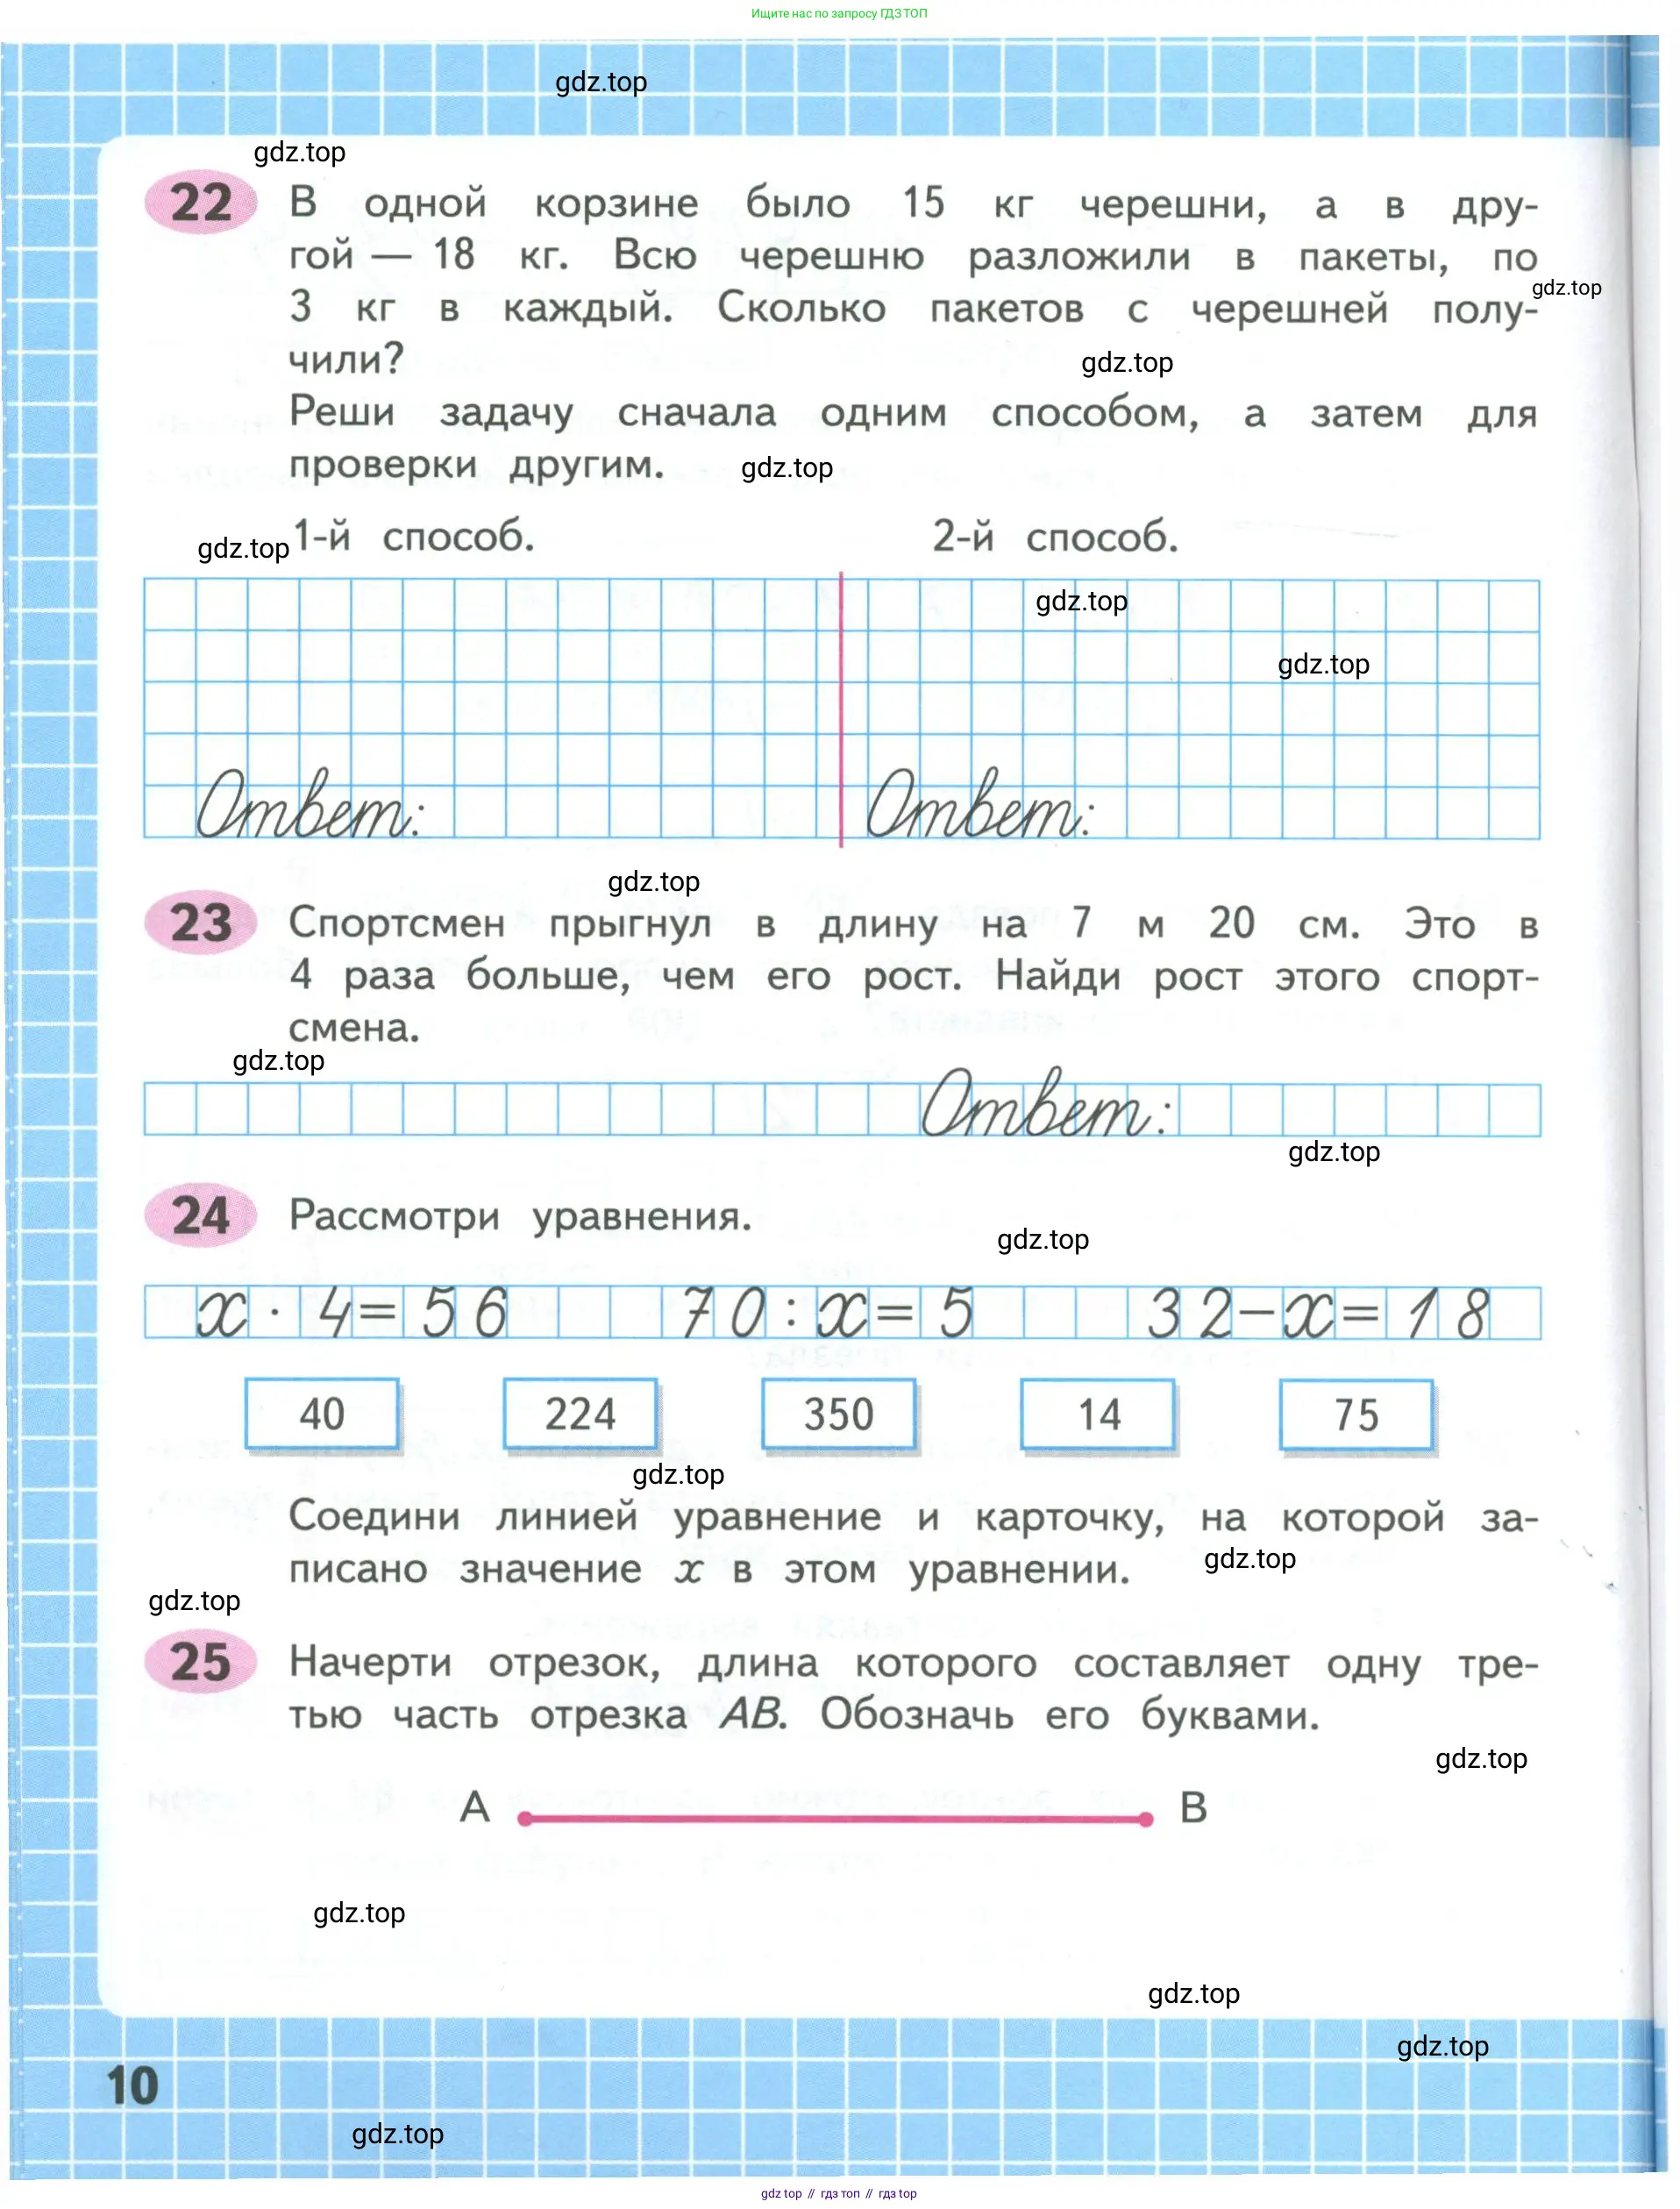 Ищите нас по запросу ГДЗ ТОП
gdz.top
gdz.top
22 В одной корзине было 15 кг черешни, а в дру-
гой — 18 кг. Всю черешню разложили в пакеты, по
gdz.top
3 кг в каждый. Сколько пакетов с черешней полу-
чили?
gdz.top
Реши задачу сначала одним способом, а затем для
проверки другим.
gdz.top
1-й способ. 2-й способ.
gdz.top
gdz.top
gdz.top
Ответ: Ответ:
gdz.top
23 Спортсмен прыгнул в длину на 7 м 20 см. Это в
4 раза больше, чем его рост. Найди рост этого спорт-
смена.
gdz.top
Ответ:
gdz.top
24 Рассмотри уравнения.
gdz.top
x · 4 = 56 70 : x = 5 32 − x = 18
40 224 350 14 75
gdz.top
Соедини линией уравнение и карточку, на которой за-
писано значение x в этом уравнении.
gdz.top
gdz.top
25 Начерти отрезок, длина которого составляет одну тре-
тью часть отрезка AB. Обозначь его буквами.
gdz.top
A B
gdz.top
gdz.top
gdz.top
10
gdz.top
gdz top // гдз топ // гдз top